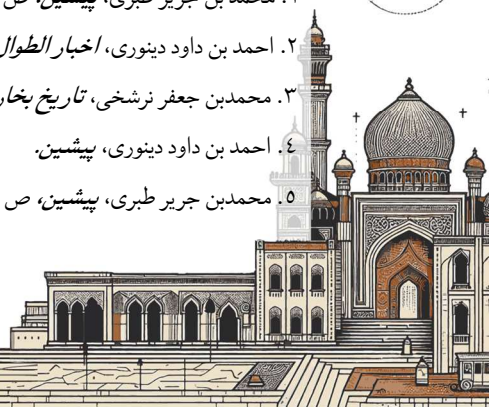 ۱. محمد بن جریر طبری، پیشین، ص
۲. احمد بن داود دینوری، اخبار الطوال
۳. محمدبن جعفر نرشخی، تاریخ بخار
٤. احمد بن داود دینوری، پیشین.
۵. محمدبن جریر طبری، پیشین، ص